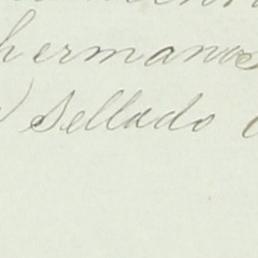 hermanos
Sellado